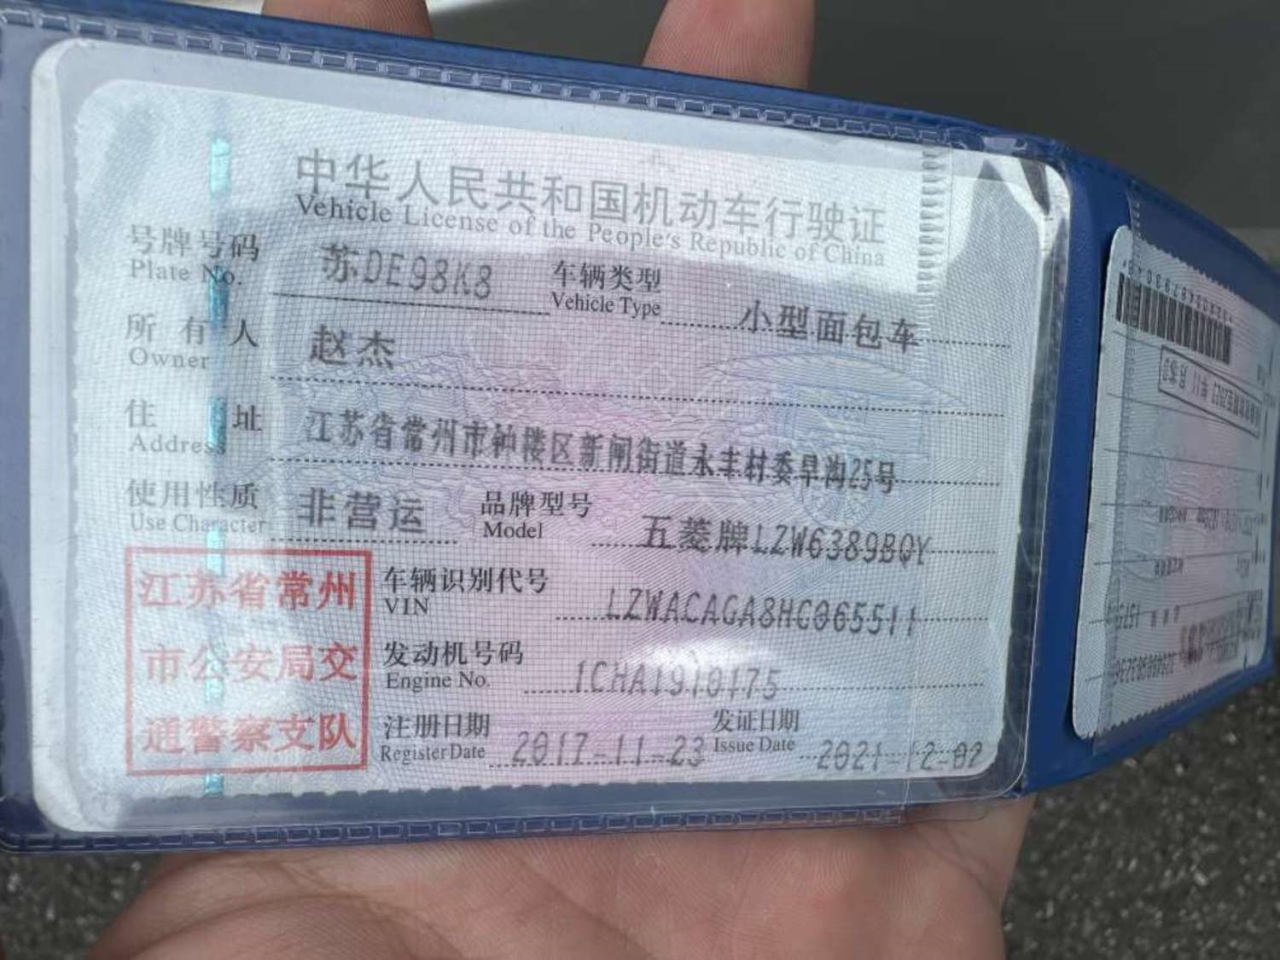 中华人民共和国机动车行驶证
Vehicle License of the People's Republic of China
号牌号码 苏DE98K8 车辆类型 小型面包车
Plate No. Vehicle Type
所有人 赵杰
Owner
住址 江苏省常州市钟楼区新闸街道永丰村委旱沟25号
Address
使用性质 非营运 品牌型号 五菱牌LZW6389BQY
Use Character Model
江苏省常州
市公安局交
通警察支队
车辆识别代号 LZWACAGA8HC065511
VIN
发动机号码 1CHA1910175
Engine No.
注册日期 2017-11-23 发证日期 2021-12-02
Register Date Issue Date